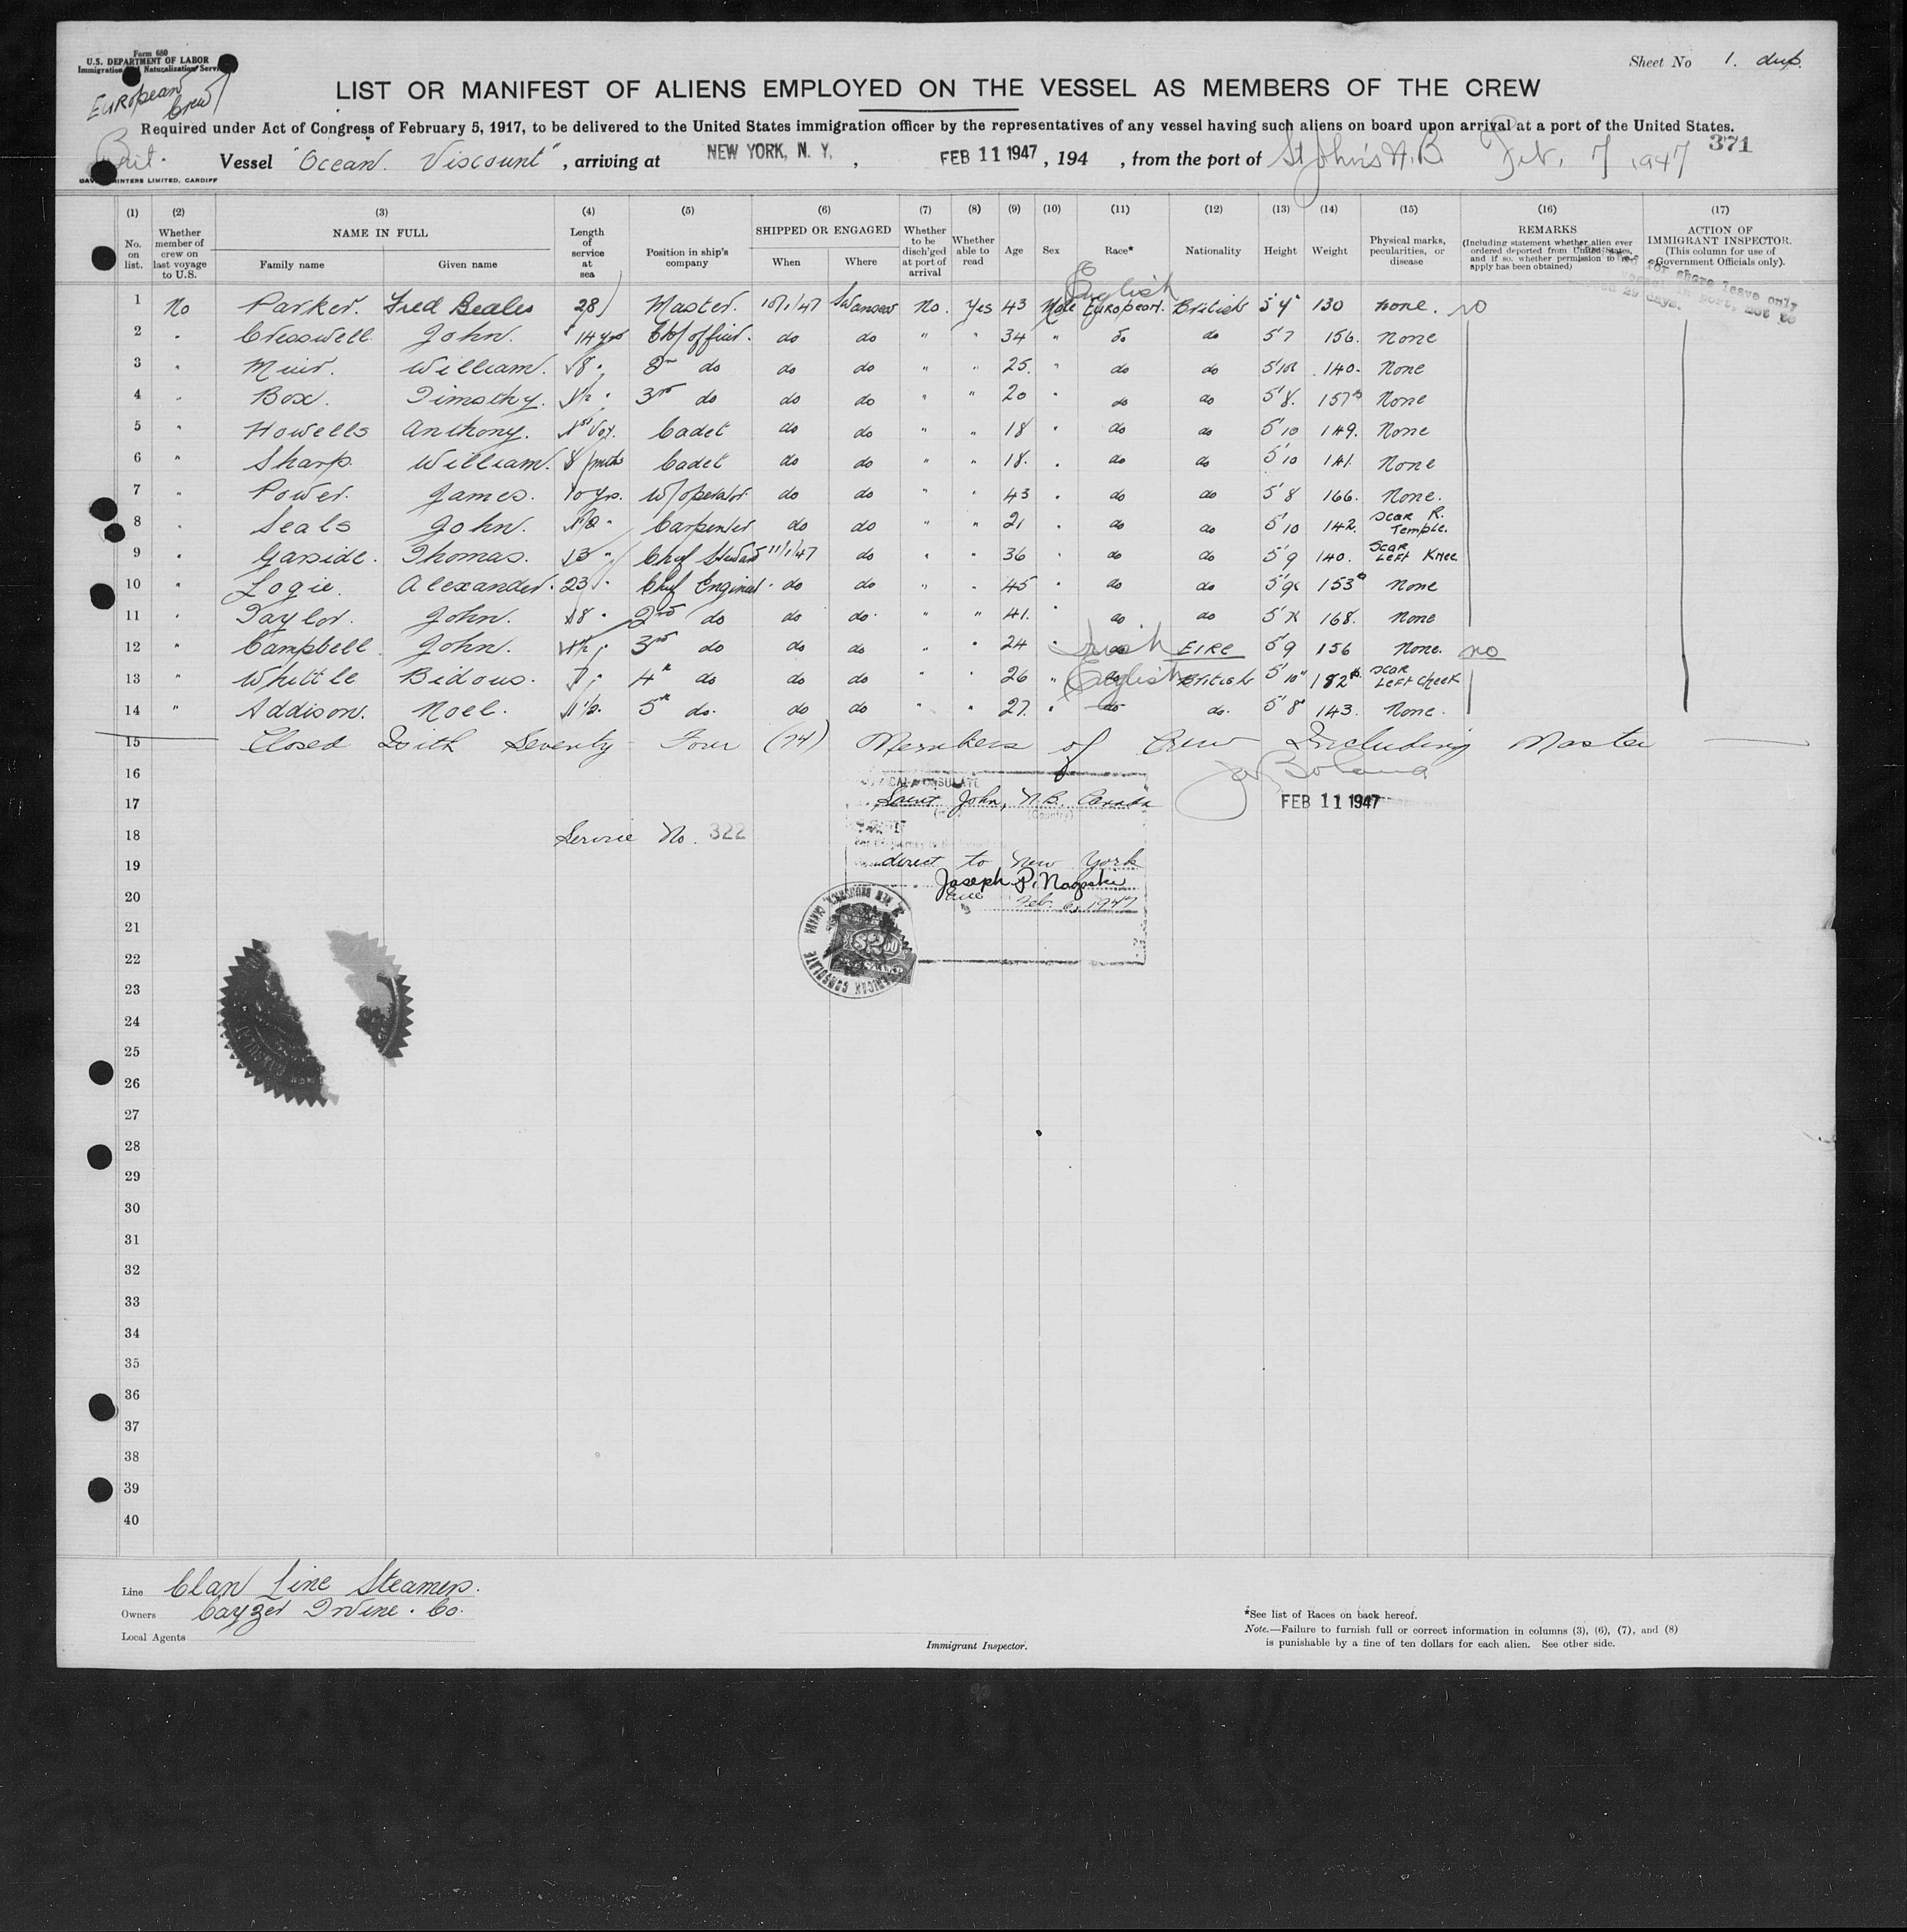 Form 680
U.S. DEPARTMENT OF LABOR
Immigration and Naturalization Service
Sheet No 1. dup.
European Crew
LIST OR MANIFEST OF ALIENS EMPLOYED ON THE VESSEL AS MEMBERS OF THE CREW
Required under Act of Congress of February 5, 1917, to be delivered to the United States immigration officer by the representatives of any vessel having such aliens on board upon arrival at a port of the United States.
371
Brit. Vessel "Ocean Viscount", arriving at NEW YORK, N. Y., FEB 11 1947, 194 , from the port of St John's N.B Feb. 7 1947
PRINTERS LIMITED, CARDIFF
(1) (2) (3) (4) (5) (6) (7) (8) (9) (10) (11) (12) (13) (14) (15) (16) (17)
No. on list. Whether member of crew on last voyage to U.S. NAME IN FULL Family name Given name Length of service at sea Position in ship's company SHIPPED OR ENGAGED When Where Whether to be disch'ged at port of arrival Whether able to read Age Sex Race* Nationality Height Weight Physical marks, pecularities, or disease REMARKS (Including statement whether alien ever ordered deported from United States, and if so, whether permission to re-apply has been obtained) ACTION OF IMMIGRANT INSPECTOR. (This column for use of Government Officials only).
for shore leave only
in port, not to
29 days.
English
1 No Parker. Fred Beales 28 Master. 10/1/47 Swansea No. Yes 43 Male European. British 5'4" 130 none. no
2 " Cresswell John. 14 yrs Ch/officer. do do " " 34 " do do 5'7 156. None
3 " Muir. William. 8 " 2nd do do do " " 25. " do do 140. None
4 " Box. Timothy. 3rd do do do " " 20 " do do 5'8. 157 None
5 " Howells Anthony. 1st Voy. Cadet do do " " 18 " do do 5'10 149. None
6 " Sharp. William. 8 mths Cadet do do " " 18. " do do 5'10 141. None
7 " Power. James. 10 yrs. W/operator do do " " 43 " do do 5'8 166. None.
8 " Seals John. Carpenter do do " " 21 " do do 5'10 142. Scar R. Temple.
9 " Garside. Thomas. 13 " Chief Steward 11/1/47 do " " 36 " do do 5'9 140. Scar Left Knee
10 " Logie. Alexander. 23 " Chief Engineer. do do " " 45 " do do 153 None
11 " Taylor. John. 18 " 2nd do do do " " 41. " do do 168. None
12 " Campbell John. 3rd do do do " " 24 " Irish EIRE 5'9 156 None. no
13 " Whittle Bidous. 7 " 4th do do do " " 26 " English British 5'10" 182 Scar Left Cheek
14 " Addison. Noel. 5th do. do do " " 27. " do do. 5'8" 143. None.
15 Closed With Seventy - Four (74) Members of Crew Including Master
16
17
18
19
20
21
22
23
24
25
26
27
28
29
30
31
32
33
34
35
36
37
38
39
40
FEB 11 1947
CONSULATE
Saint John, N.B. Canada
(Country)
Service No. 322
direct to New York
Joseph P. Nagoski
Vice
Feb. 6, 1947
AMERICAN CONSULATE
NEW BRUNSWICK, CANADA
$2.00
Line Clan Line Steamers.
Owners Cayzer Irvine. Co.
Local Agents
Immigrant Inspector.
*See list of Races on back hereof.
Note.—Failure to furnish full or correct information in columns (3), (6), (7), and (8)
is punishable by a fine of ten dollars for each alien. See other side.